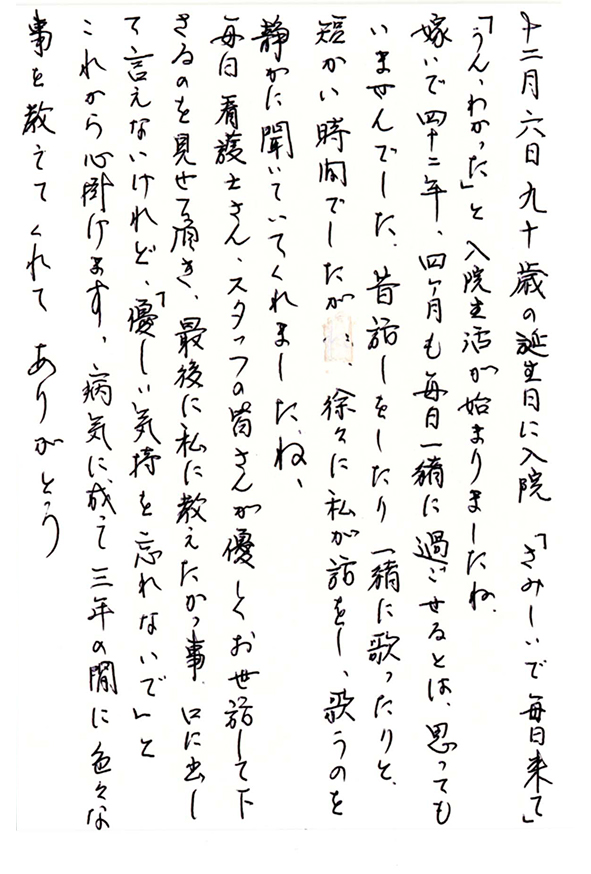 十二月六日九十歳の誕生日に入院 「さみしいで毎日来て」
「うん、わかった」と入院生活が始まりましたね。
嫁いで四十二年、四ヶ月も毎日一緒に過ごせるとは、思っても
いませんでした。昔話しをしたり一緒に歌ったりと、
短かい時間でしたが、徐々に私が話をし、歌うのを
静かに聞いていてくれましたね、
毎日看護士さん、スタッフの皆さんが優しくお世話して下
さるのを見せて頂き、最後に私に教えたかっ事、口に出し
て言えないけれど、「優しい気持を忘れないで」と
これから心掛けます、病気に成って三年の間に色々な
事を教えてくれて ありがとう